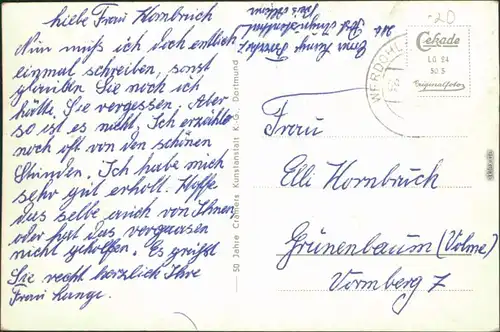 liebe Frau Kornbruch
Nun muß ich doch endlich
einmal schreiben, sonst
glauben Sie noch ich
hätte Sie vergessen. Aber
so ist es nicht. Ich erzähle
noch oft von den schönen
Stunden. Ich habe mich
sehr gut erholt. Hoffe
das selbe auch von Ihnen
oder hat das vergaasen
nicht geholfen. Es grüßt
Sie recht herzlich Ihre
Frau Lange.
50 Jahre Cramers Kunstanstalt K.-G., Dortmund
WERDOHL
-20
Cekade
LO 24
50 S
Originalfoto
Frau
Elli Kornbruch
Grünenbaum (Volme)
Vormberg 7